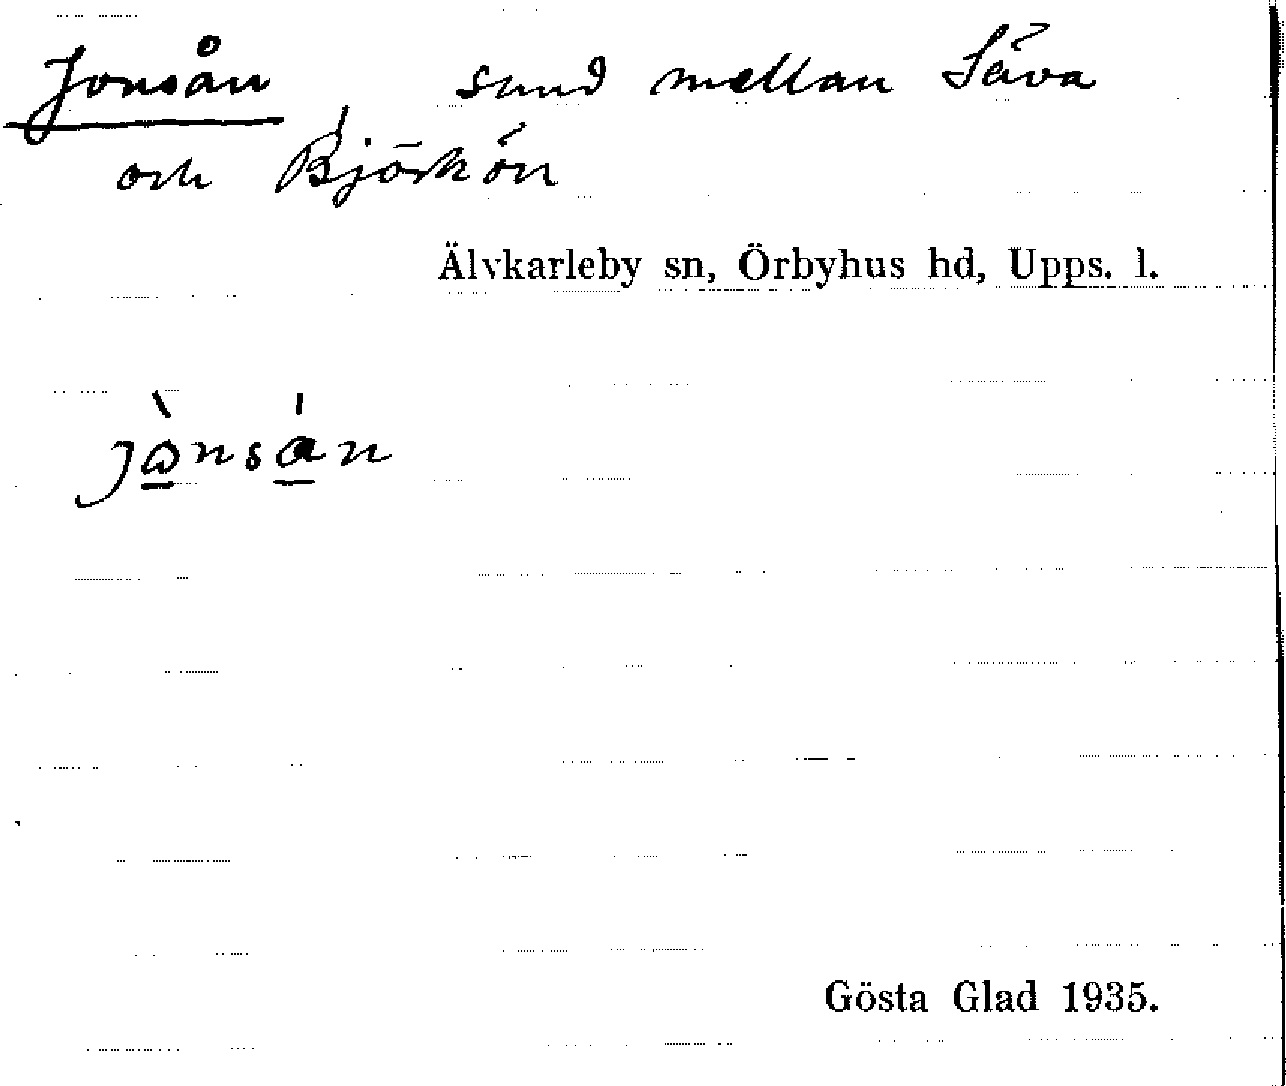 Jonsån sund mellan Säva
och Björkön
Älvkarleby sn, Örbyhus hd, Upps. l.
jònsán
Gösta Glad 1935.